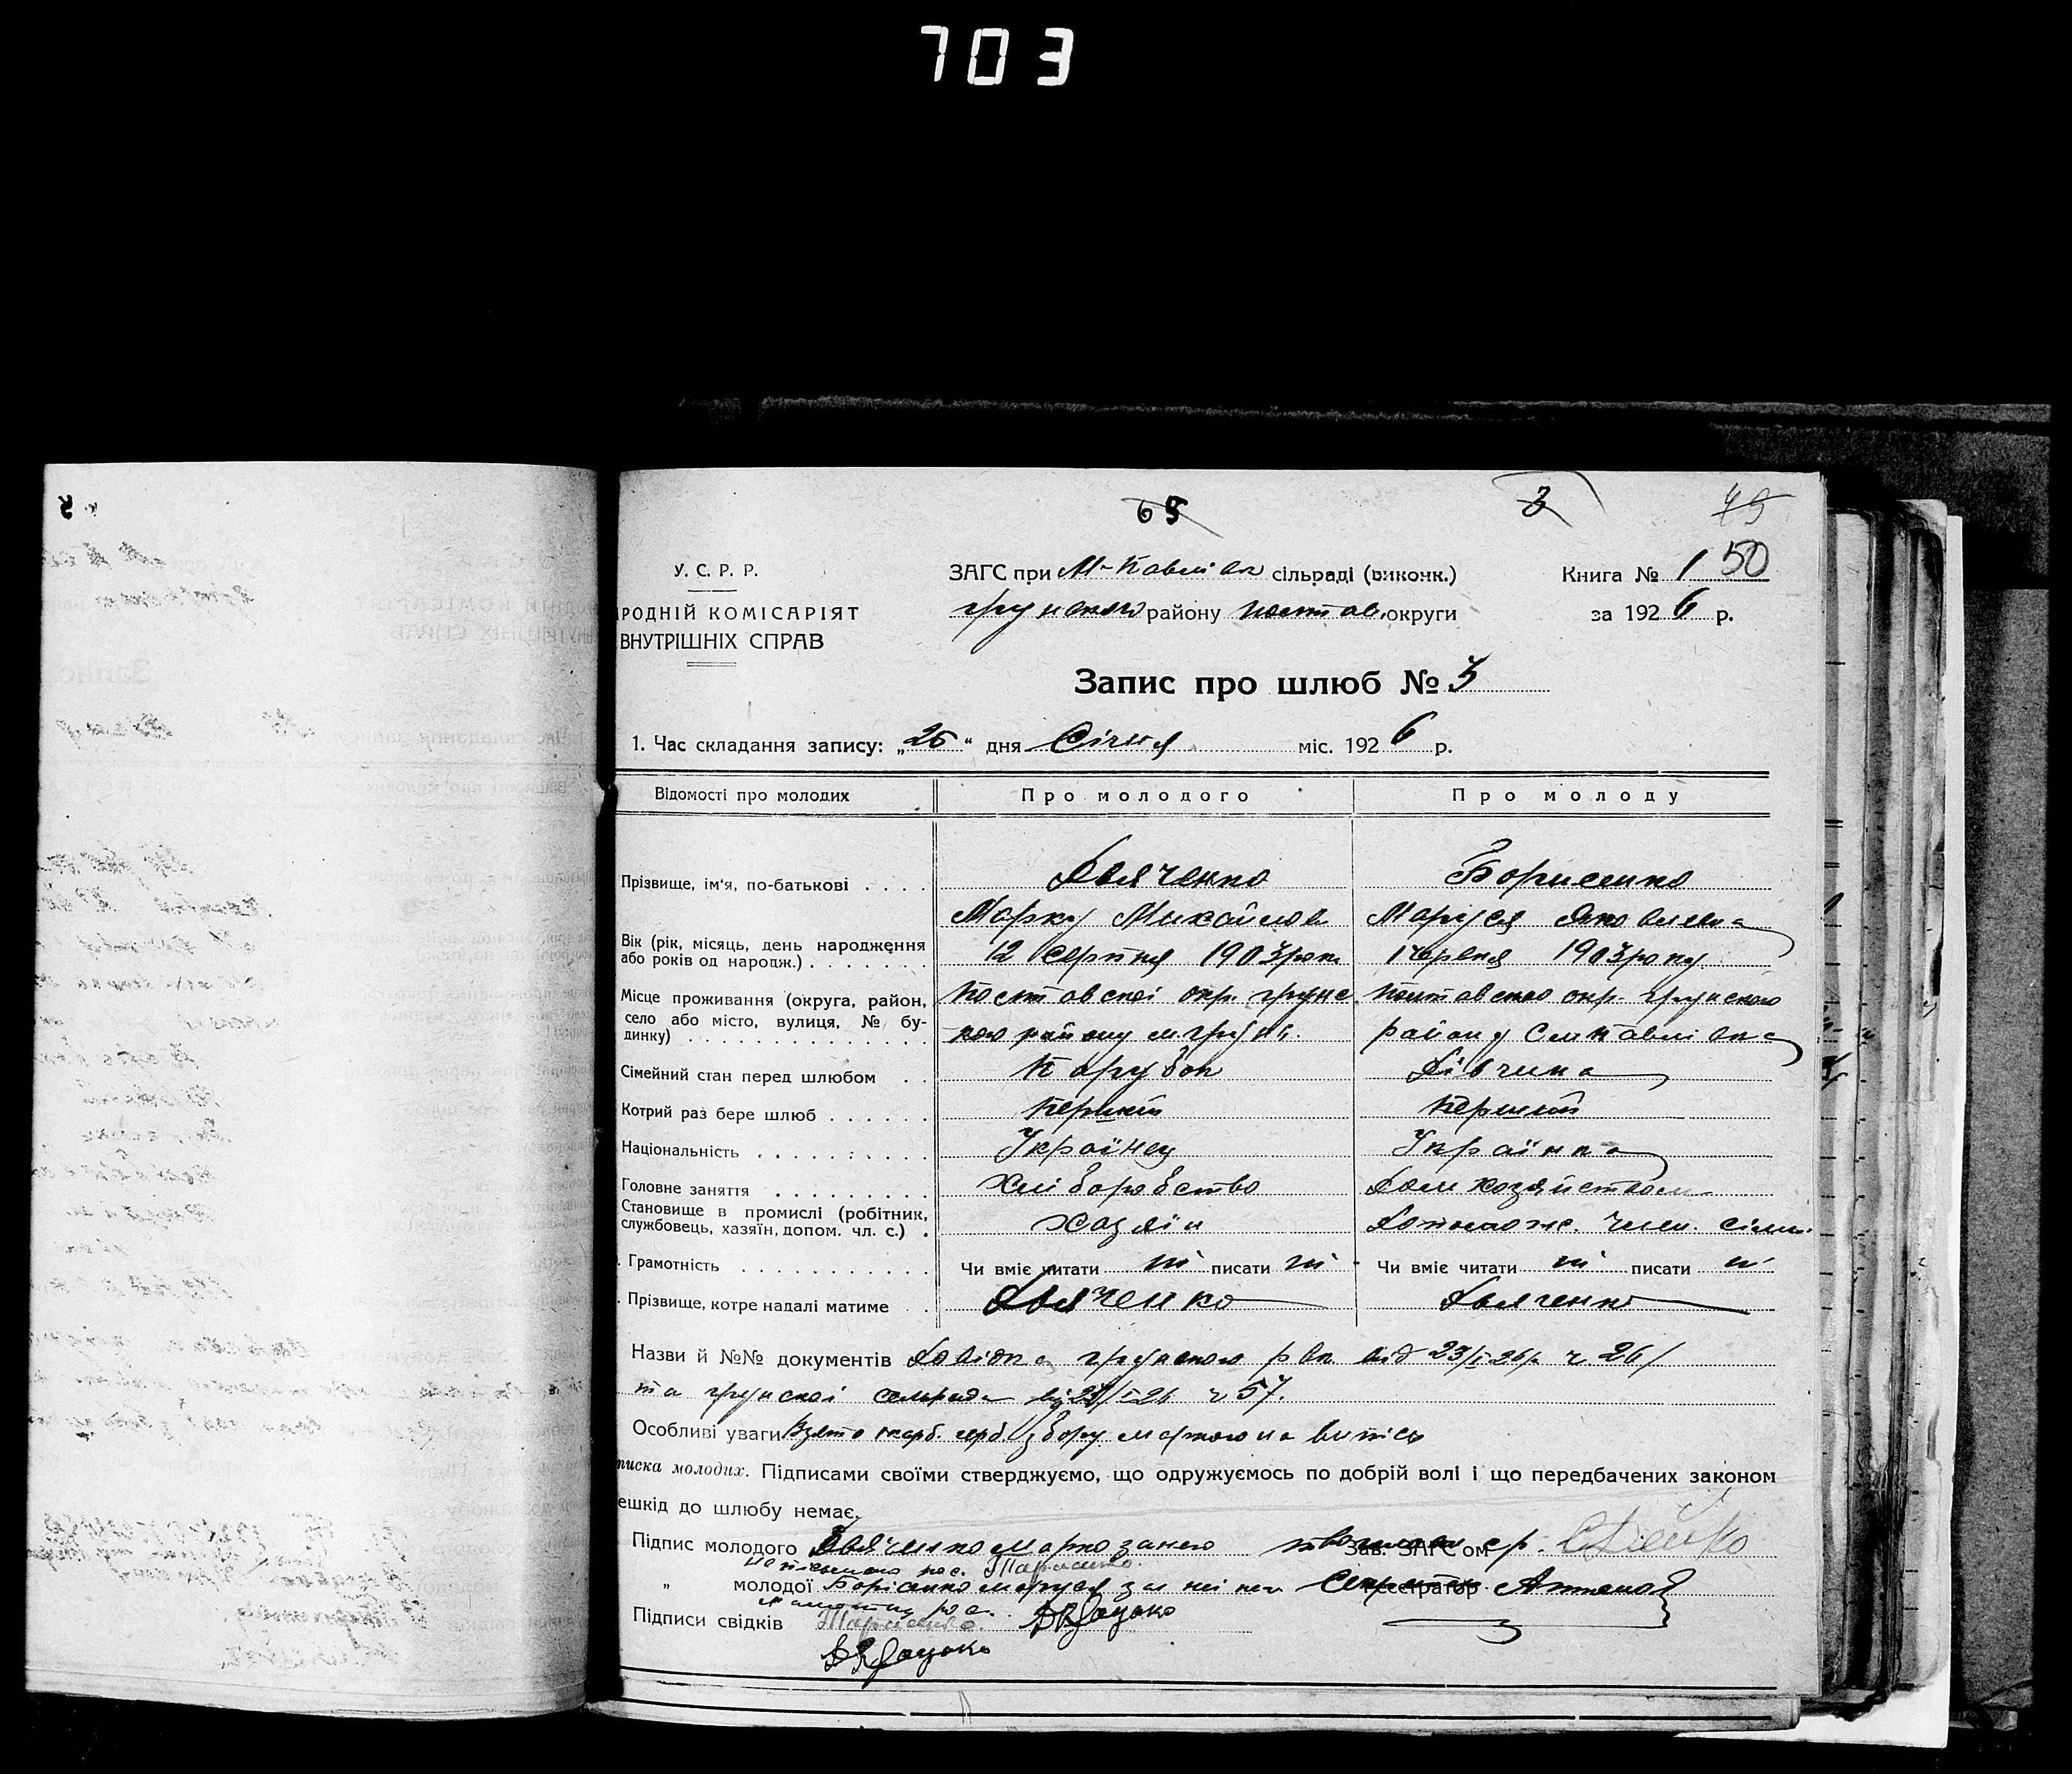 703
65
3
49
50
У. С. Р. Р.
РОДНІЙ КОМІСАРІЯТ
ВНУТРІШНІХ СПРАВ
ЗАГС при М-Павлівск сільраді (виконк.)
грунського району Полтав. округи
Книга № 1
за 1926 р.
Запис про шлюб № 3
1. Час складання запису: „25“ дня Січня міс. 1926 р.
Відомості про молодих Про молодого Про молоду
Прізвище, ім'я, по-батькові . . . . Дяченко Борисенко
Марко Михайлов Маруся Яковлевна
Вік (рік, місяць, день народження
або років од народж.) . . . . . . . 12 Серпня 1903 рок 1 червня 1903 року
Місце проживання (округа, район,
село або місто, вулиця, № бу-
динку) . . . . . . . . . . . . . .
Полтавської окр. грунс
кого району м. грунь.
Полтавсько окр. грунского
району С. мПавлівка
Сімейний стан перед шлюбом . . Парубок Дівчина
Котрий раз бере шлюб . . . . . . Перший Перший
Національність . . . . . . . . . . Українец Українка
Головне заняття . . . . . . . . . Хліборобство Дом хозяйством
Становище в промислі (робітник,
службовець, хазяїн, допом. чл. с.) . Хозяін Допомож. член. сімьі
. Грамотність . . . . . . . . . . . Чи вміє читати ні писати ні Чи вміє читати ні писати ні
. Прізвище, котре надалі матиме . . Дяченко Дяченко
Назви й №№ документів Довідка грунского рвк від 23/I-26р ч 26/
та грунскої сельради від 23/I 26 ч 57.
Особливі уваги Взято гкарб. герб. збору маркою на випісь
писка молодих. Підписами своїми стверджуємо, що одружуємось по добрій волі і що передбачених законом
ешкід до шлюбу немає.
Підпис молодого Дяченко Марко за него Зав. ЗАГС'ом
молодої Борісенко Маруся за неї Реєстратор
Підписи свідків